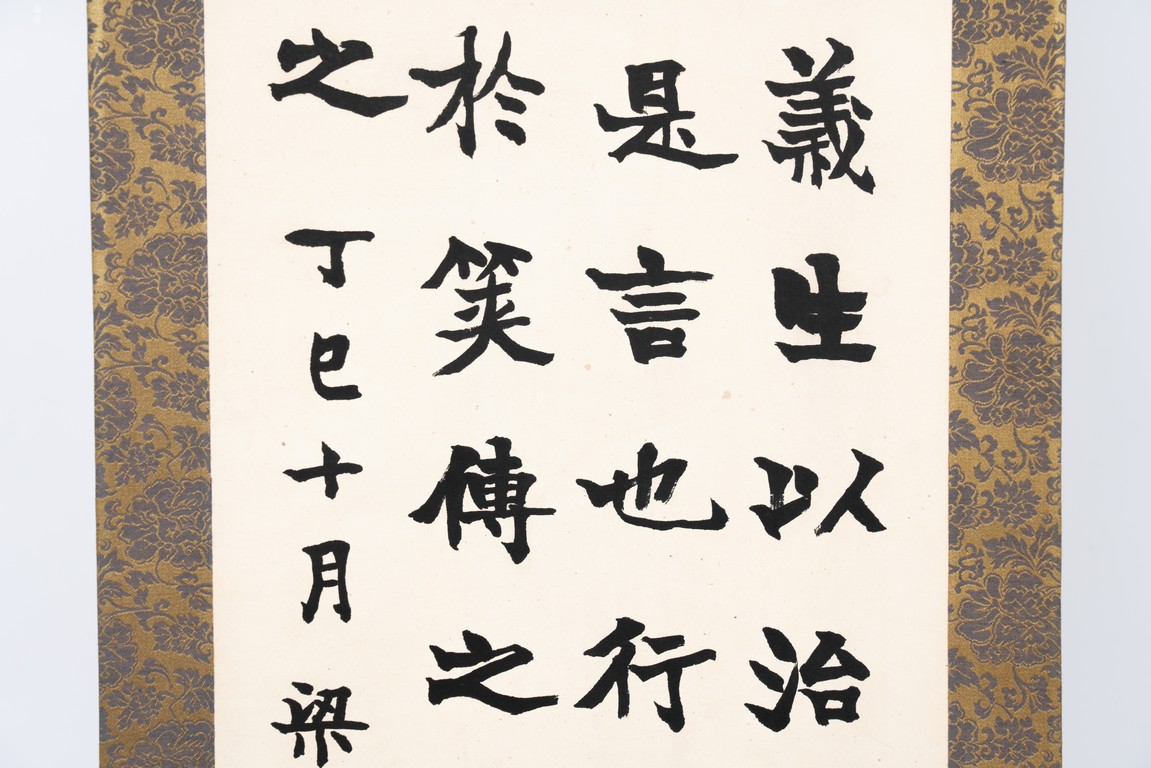 義生以治
是言也行
於筴傳之
之丁巳十月梁